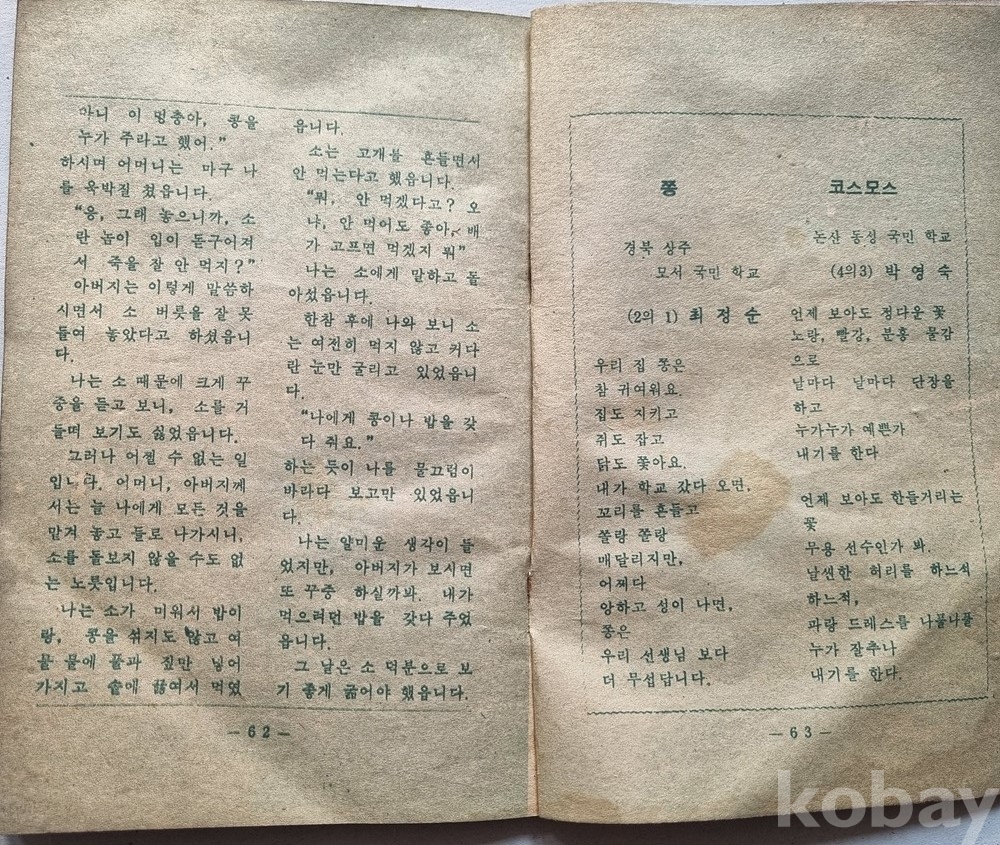 아니 이 멍충아, 콩을
누가 주라고 했어."
하시며 어머니는 마구 나
를 욱박질 쳤읍니다.
"응, 그래 놓으니까, 소
란 놈이 입이 돋구어져
서 죽을 잘 안 먹지?"
아버지는 이렇게 말씀하
시면서 소 버릇을 잘 못
들여 놓았다고 하셨읍니
다.
나는 소 때문에 크게 꾸
중을 듣고 보니, 소를 거
들떠 보기도 싫었읍니다.
그러나 어쩔 수 없는 일
입니다. 어머니, 아버지께
서는 늘 나에게 모든 것을
맡겨 놓고 들로 나가시니,
소를 돌보지 않을 수도 없
는 노릇입니다.
나는 소가 미워서 밥이
랑, 콩을 섞지도 않고 여
물 물에 풀과 짚만 넣어
가지고 솥에 끓여서 먹였
읍니다.
소는 고개를 흔들면서
안 먹는다고 했읍니다.
"뭐, 안 먹겠다고? 오
냐, 안 먹어도 좋아, 배
가 고프면 먹겠지 뭐"
나는 소에게 말하고 돌
아섰읍니다.
한참 후에 나와 보니 소
는 여전히 먹지 않고 커다
란 눈만 굴리고 있었읍니
다.
"나에게 콩이나 밥을 갖
다 줘요."
하는 듯이 나를 물끄럼이
바라다 보고만 있었읍니
다.
나는 얄미운 생각이 들
었지만, 아버지가 보시면
또 꾸중 하실까봐. 내가
먹으려던 밥을 갖다 주었
읍니다.
그 날은 소 덕분으로 보
기 좋게 굶어야 했읍니다.
— 62 —
쫑
경북 상주
모서 국민 학교
(2의 1) 최정순
우리 집 쫑은
참 귀여워요.
집도 지키고
쥐도 잡고
닭도 쫓아요.
내가 학교 갔다 오면,
꼬리를 흔들고
쫄랑 쫄랑
매달리지만,
어쩌다
앙하고 성이 나면,
쫑은
우리 선생님 보다
더 무섭답니다.
코스모스
논산 동성 국민 학교
(4의3) 박영숙
언제 보아도 정다운 꽃
노랑, 빨강, 분홍 물감
으로
날마다 날마다 단장을
하고
누가누가 예쁜가
내기를 한다
언제 보아도 한들거리는
꽃
무용 선수인가 봐.
날씬한 허리를 하느적
하느적,
파랑 드레스를 나풀나풀
누가 잘추나
내기를 한다.
— 63 —
kobay